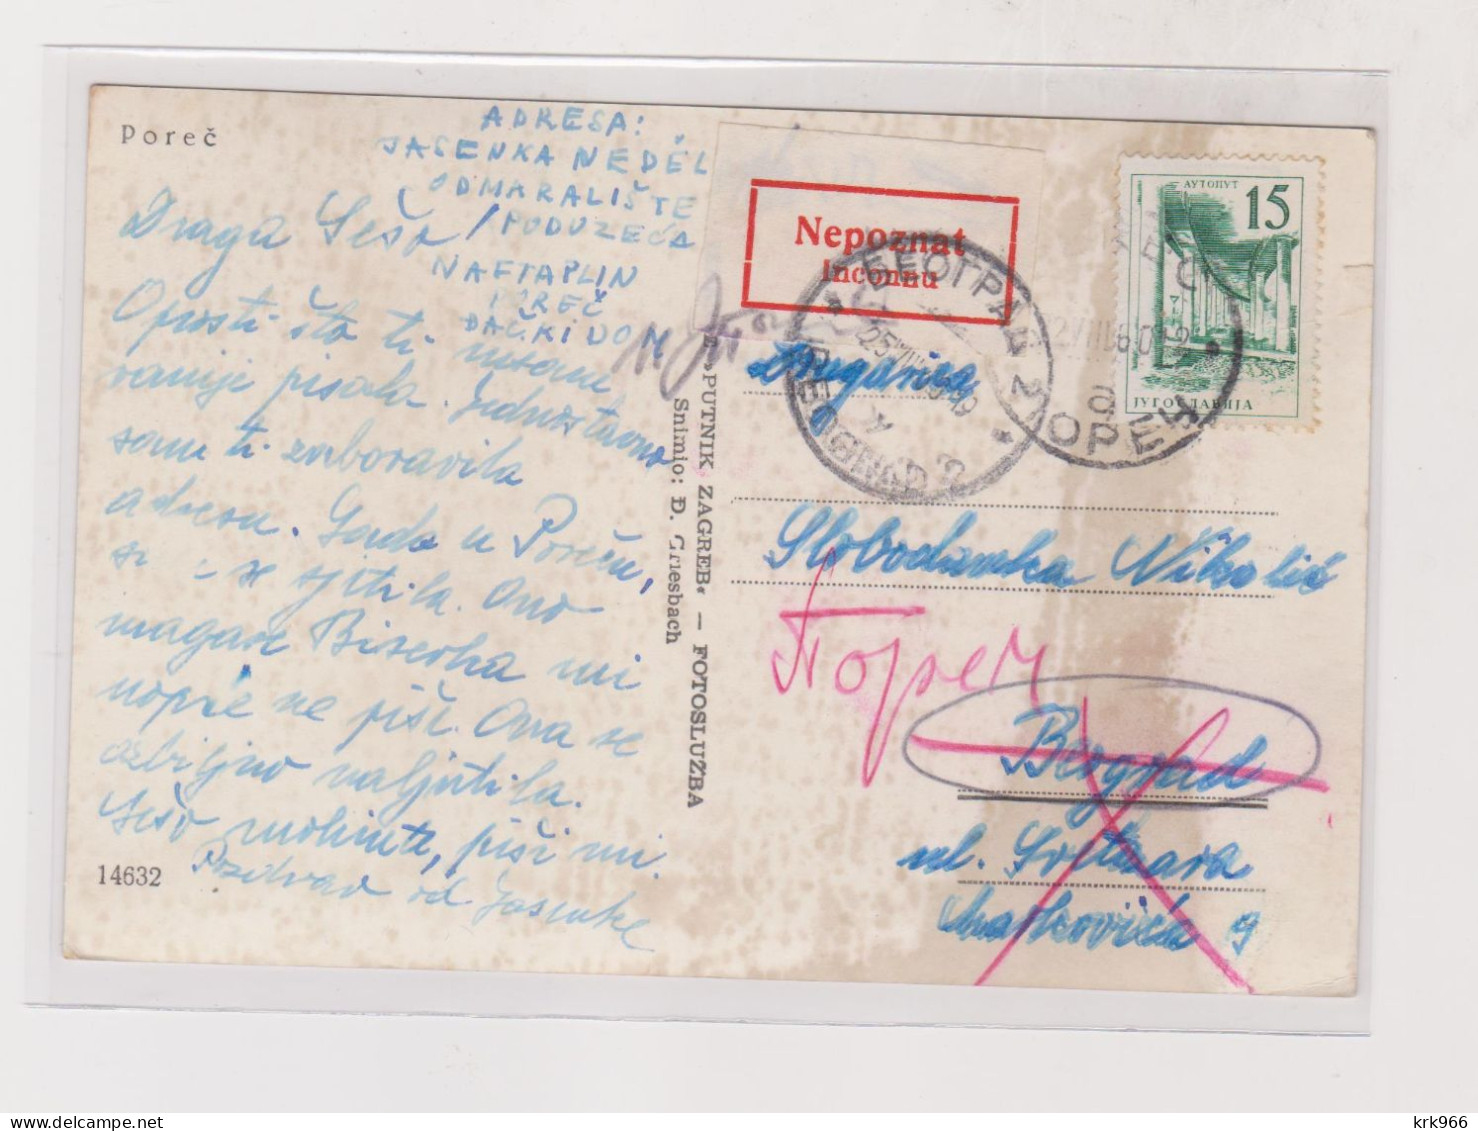 Poreč
ADRESA:
JASENKA NEDĚL
ODMARALIŠTE
PODUZEĆA
NAFTAPLIN
POREČ
ĐAČKI DOM
Draga Sešo
Oprosti što ti nisam
ranije pisala. Jednostavno
sam ti zaboravila
adresu. Sada u Poreču,
se sjetila. Ono
magare Biserka mi
uopće ne piši. Ona se
ozbiljno naljutila.
Sešo molim te, piši mi.
Pozdrav od Jasenke
14632
»PUTNIK ZAGREB« — FOTOSLUŽBA
Snimio: Đ. Griesbach
Nepoznat
Inconnu
БЕОГРАД 2
BEOGRAD 2
25 VIII
АУТОПУТ
15
ЈУГОСЛАВИЈА
ПОРЕЧ
Drugarica
Slobodanka Nikolić
Пореч
Beograd
ul. Svetozara
Markovića 9
krk966